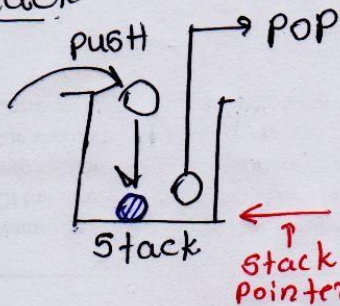 PUSH
POP
Stack
Stack
Pointer